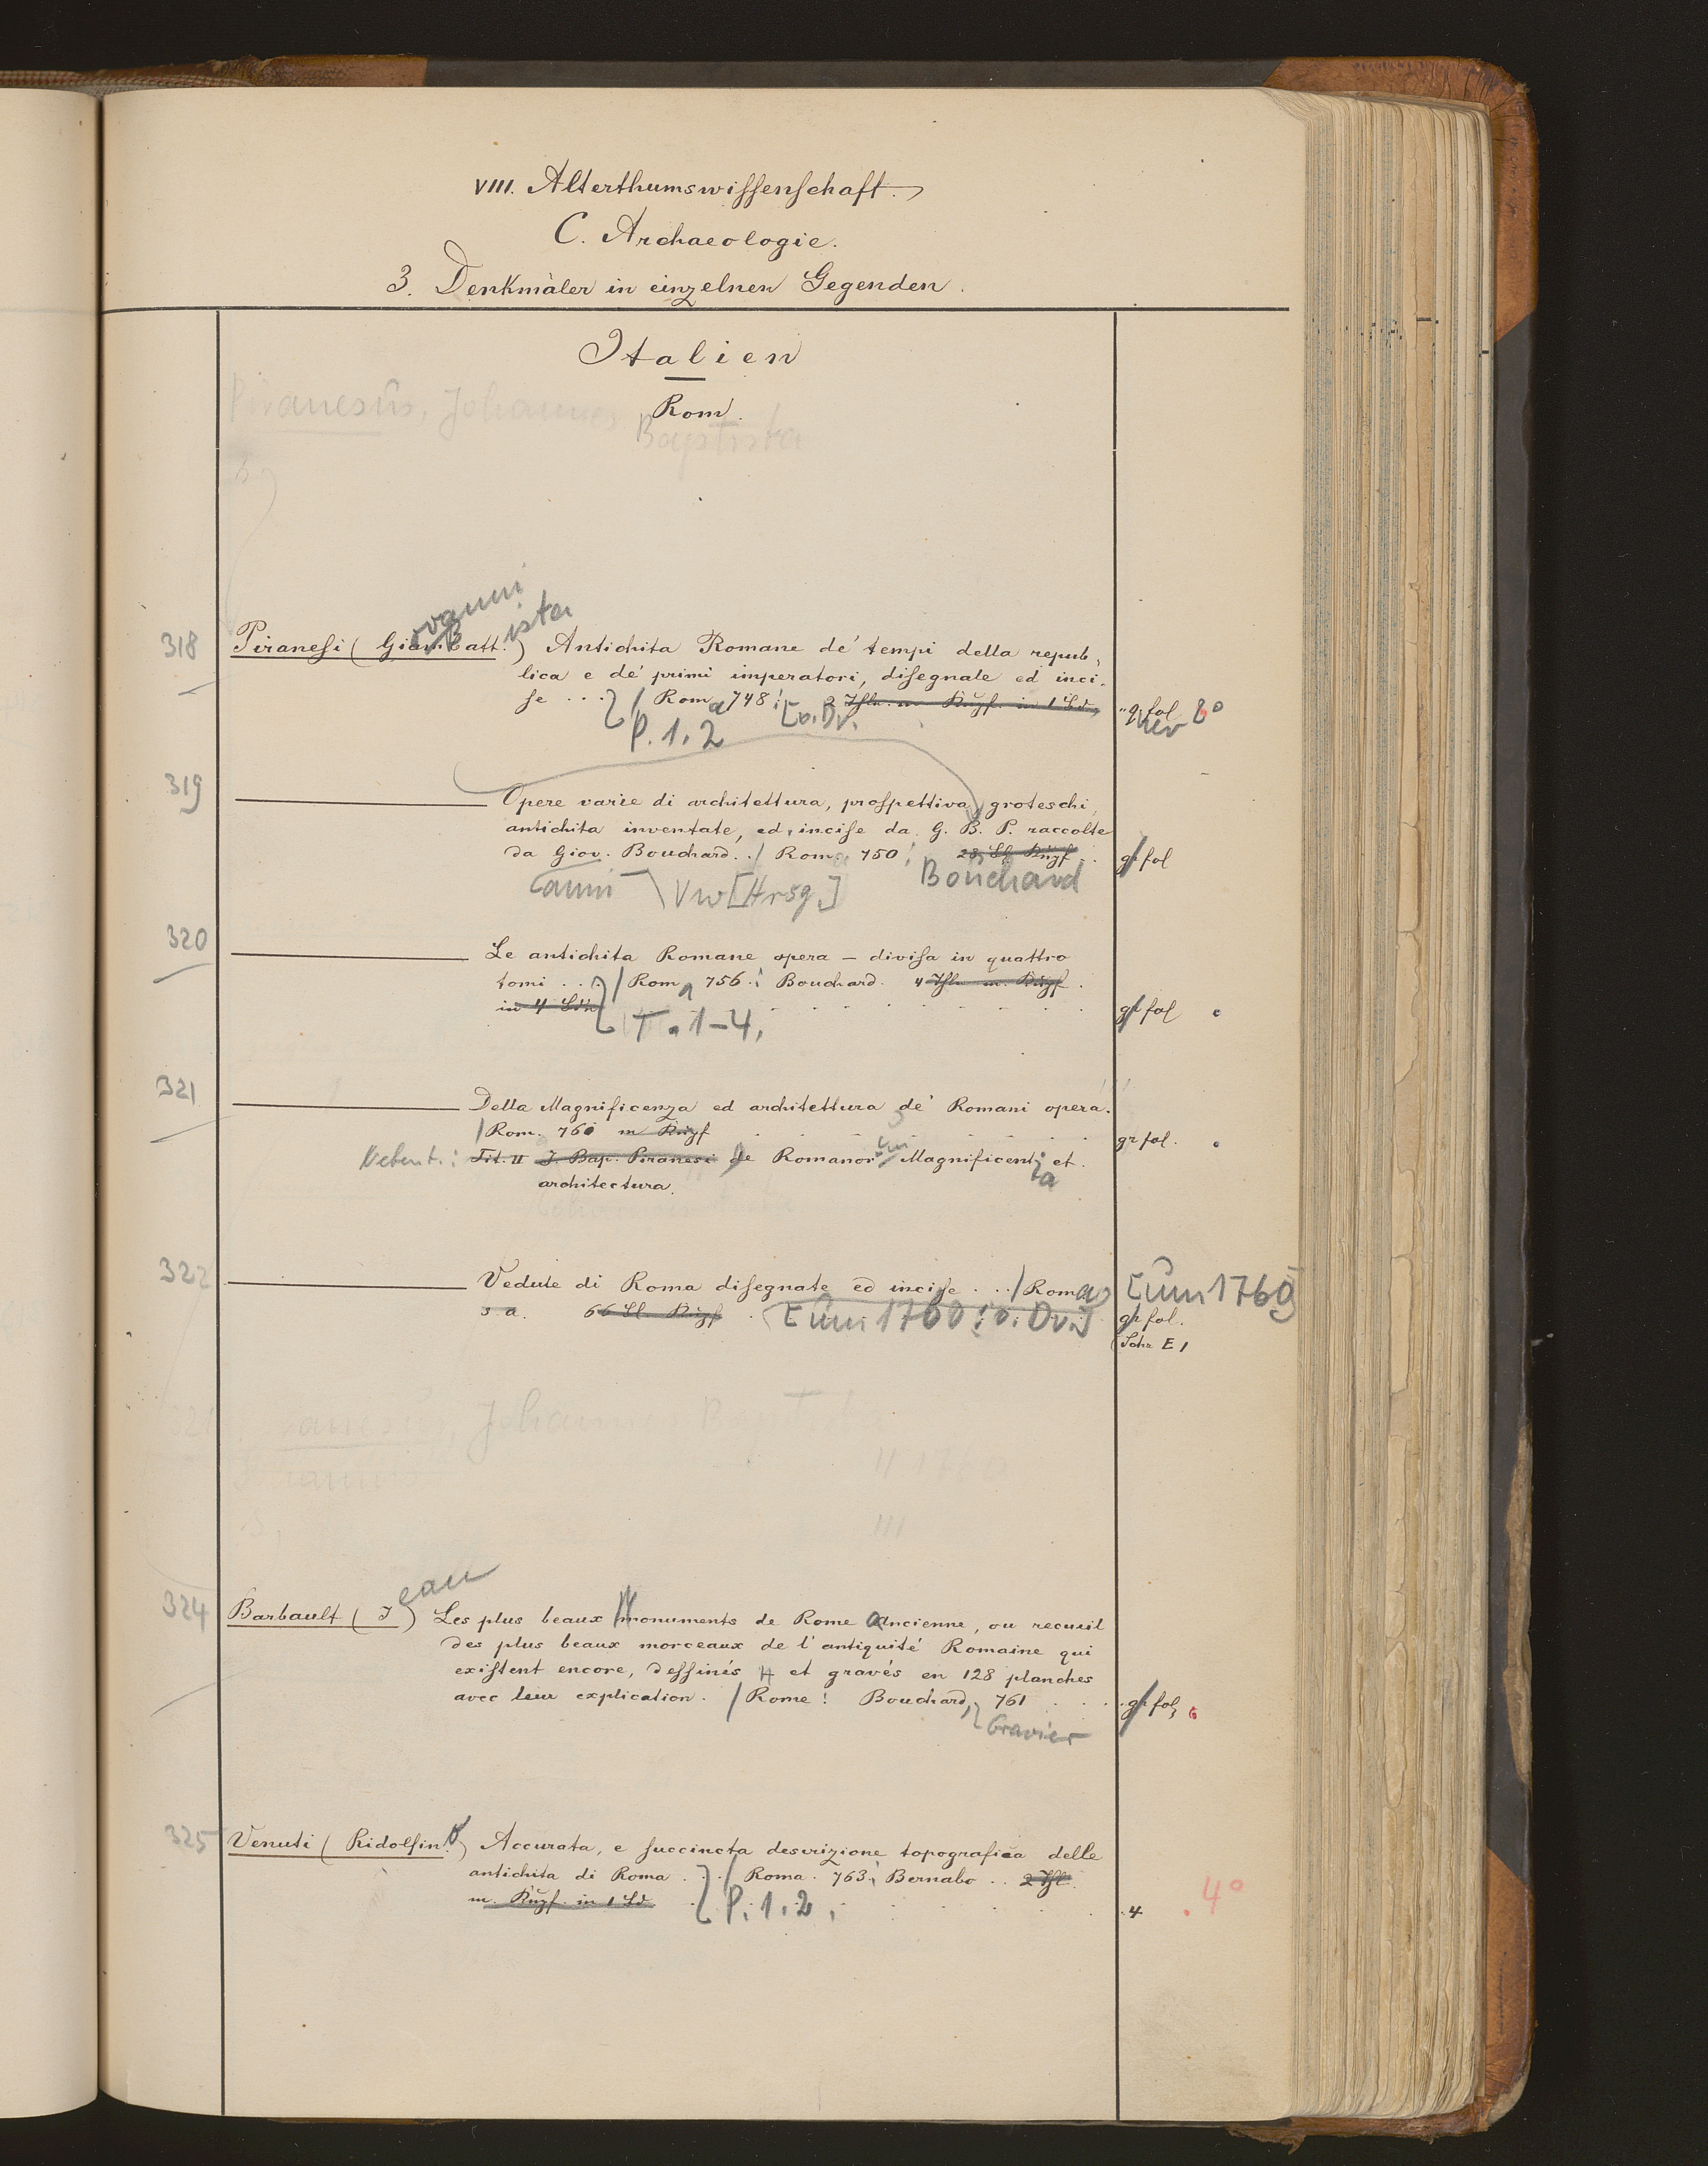 VIII. Alterthumswissenschaft.
C. Archaeologie.
3. Denkmäler in einzelnen Gegenden.
Italien
Rom.
Piranesius, Johannes
Baptista
318
ovanni
ista
Piranesi (Giambatt.) Antichita Romane de' tempi della repub,
lica e de' primi imperatori, disegnate ed inci,
se ... / Roma 748: 2 Thle. m. Kupf. in 1 Bd.
[o. Dr.
P. 1. 2
fol
8°
319
Opere varie di architettura, prospettiva, groteschi,
antichita inventate, ed, incise da G. B. P. raccolte
da Giov. Bouchard. ./ Roma 750: 28 Bl. Kupf.
gr fol
anni
Vw [Hrsg.]
Bouchard
320
Le antichita Romane opera – divisa in quattro
tomi . . / Roma 756: Bouchard. 4 Thle m. Kupf.
in 4 Bdn
gr fol
T. 1-4.
321
Della Magnificenza ed architettura de' Romani opera.
/ Rom. 760 m Kupf
gr fol.
Nebent.: Tit. II J. Bap. Piranesi de Romanor Magnificentia et.
architectura.
322
Vedute di Roma disegnate ed incise . . / Roma
[um 1760
s. a. 66 Bl Kupf [um 1760: o. Dr.]
gr fol.
E 1
Johannes Baptista
II 1760
III
324
ean
Barbault (J) Les plus beaux Monuments de Rome ancienne, ou recueil
des plus beaux morceaux de l'antiquité Romaine qui
existent encore, dessinés et gravés en 128 planches
avec leur explication. / Rome: Bouchard, 761
gr fol
Gravier
325
Venuti (Ridolfin.) Accurata, e succincta descrizione topografica delle
antichita di Roma . . / Roma. 763: Bernabo .. 2 Thle
m. Kupf. in 1 Bd.
P. 1. 2.
4
4°